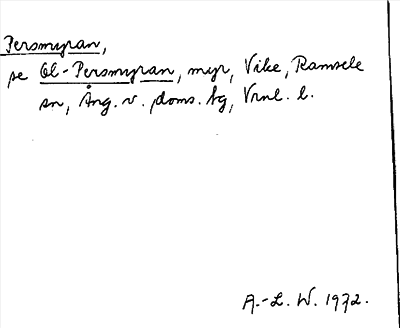 Persmyran,
se Ol-Persmyran, myr, Vike, Ramsele
sn, Ång. v. doms. bg, Vrnl. l.
A.-L. W. 1972.